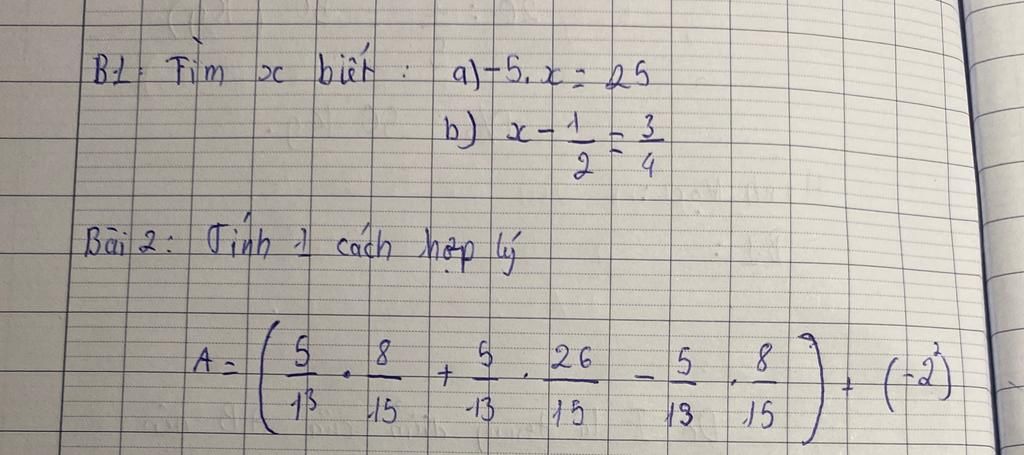 B1: Tìm x biết: a) -5.x = 25
b) x - 1/2 = 3/4
Bài 2: Tính 1 cách hợp lý
A = (5/13 . 8/15 + 5/13 . 26/15 - 5/13 . 8/15) + (-2²)